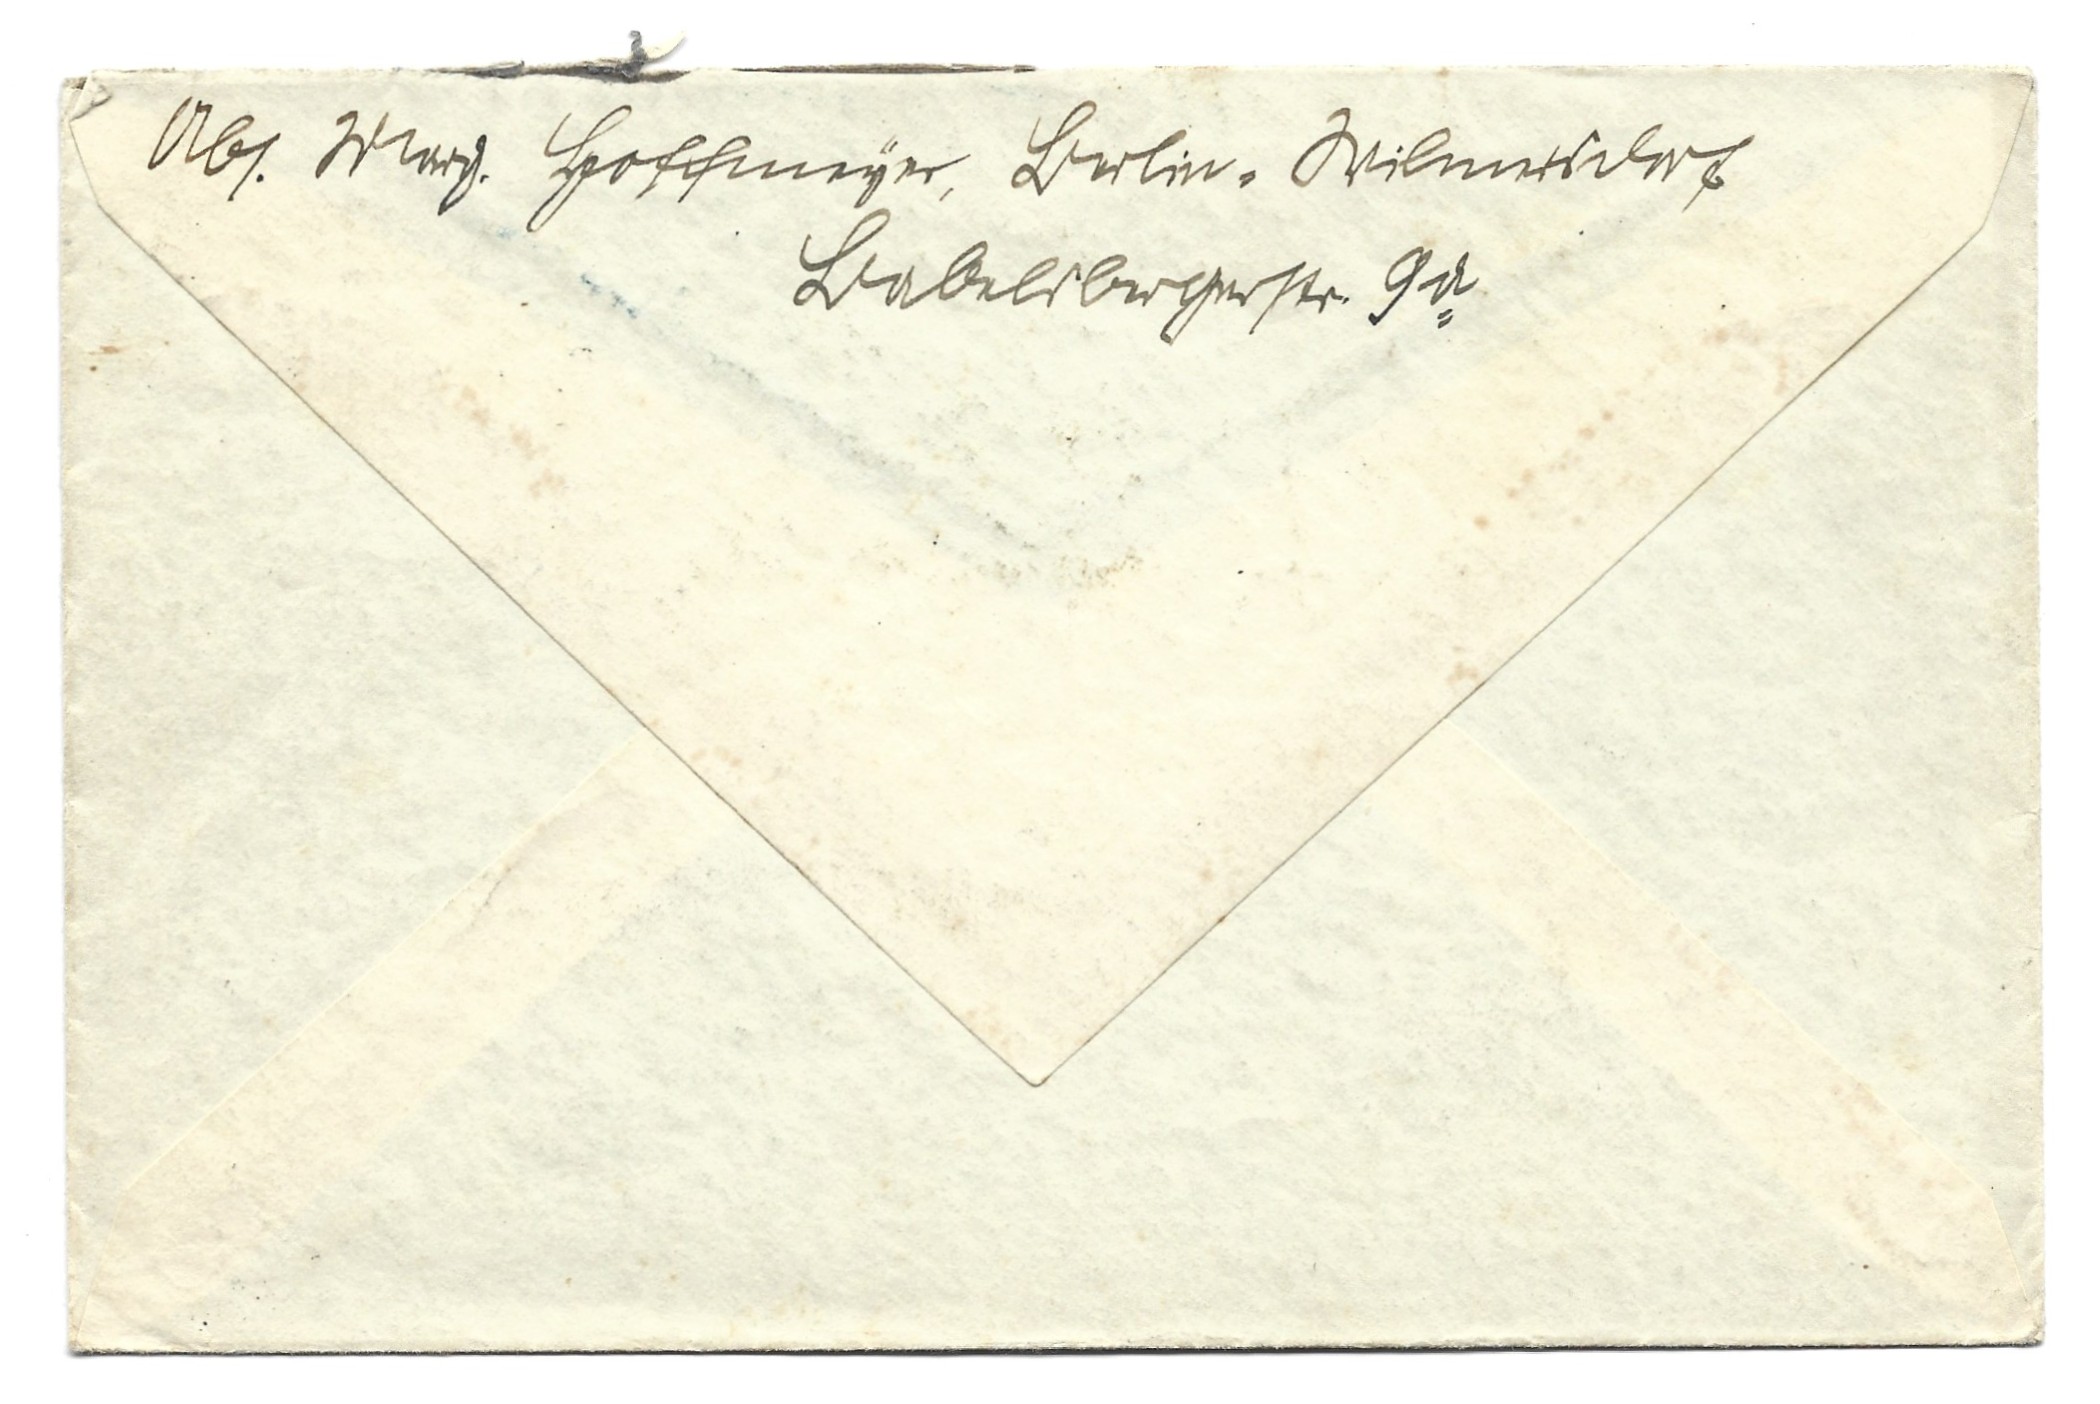 Abs. Marg. Hoffmeyer, Berlin-Wilmersdorf
Babelsbergerstr. 9a